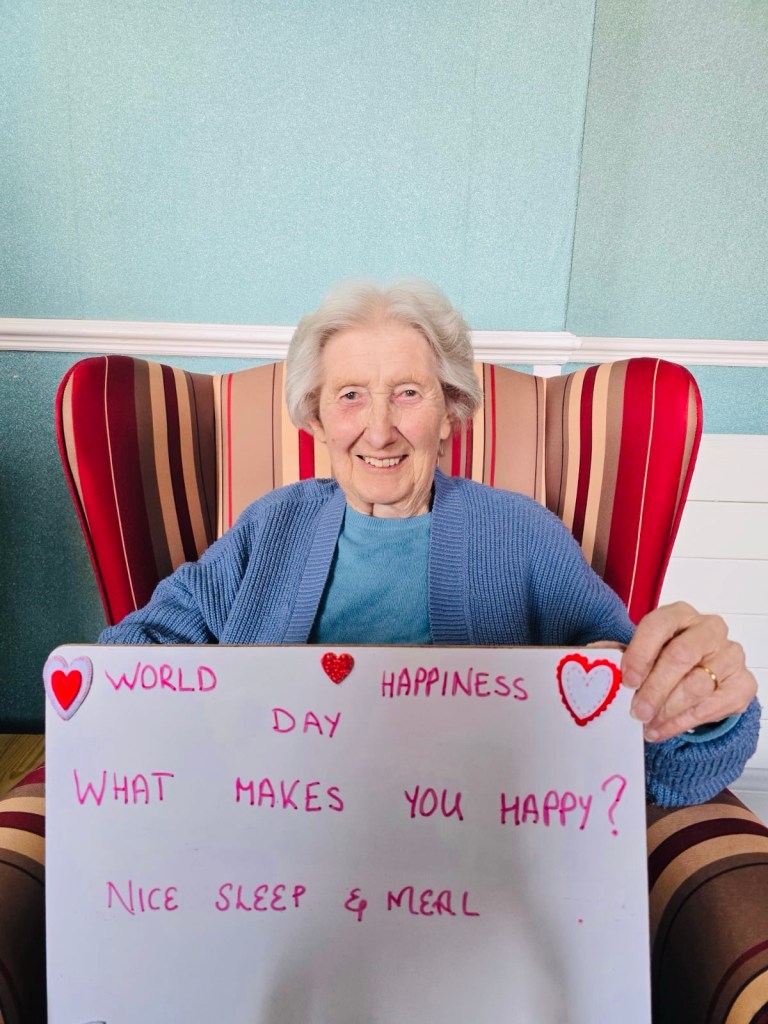 WORLD HAPPINESS
DAY
WHAT MAKES YOU HAPPY?
NICE SLEEP & MEAL